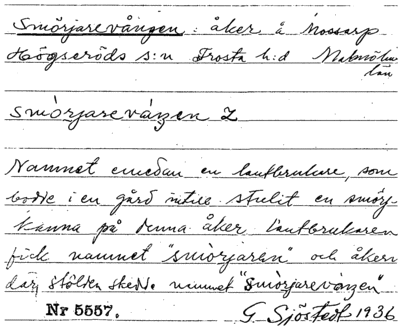 Smörjarevången : åker å Mossarp
Högseröds s:n Frosta h:d Malmöhus
län
Smörjarevången 2
Namnet emedan en lantbrukare, som
bodde i en gård intill stulit en smörj-
kanna på denna åker. Lantbrukaren
fick namnet "smörjaren" och åkern
där stölden skedde namnet "Smörjarevången"
Nr 5557. G. Sjöstedt 1936